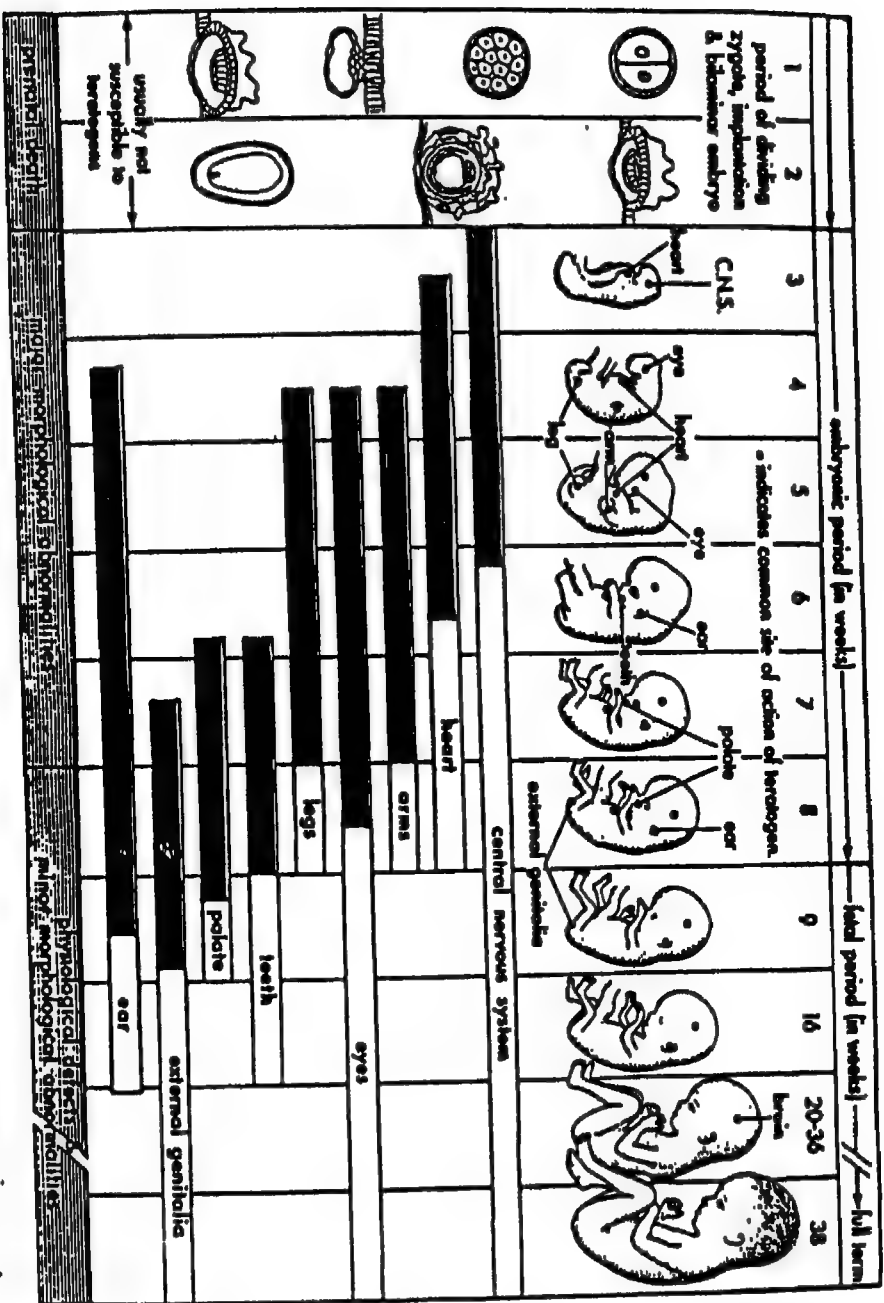 embryonic period (in weeks)
fetal period (in weeks)
full term
1
2
3
4
5
6
7
8
9
16
20-36
38
period of dividing
zygote, implantation
& bilaminar embryo
• indicates common site of action of teratogen
C.N.S.
heart
eye
heart
arm
leg
eye
ear
teeth
palate
ear
external genitalia
brain
central nervous system
heart
arms
eyes
legs
teeth
palate
external genitalia
ear
usually not
susceptible to
teratogens
prenatal death
major morphological abnormalities
physiological defects &
minor morphological abnormalities